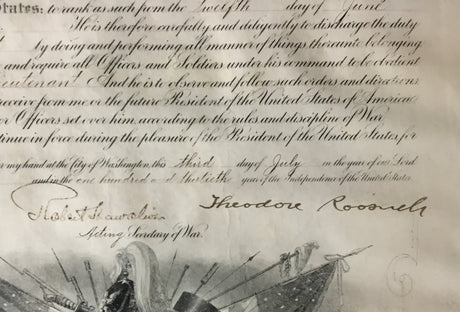 States: to rank as such from the Twelfth day of June
He is therefore carefully and diligently to discharge the duty
by doing and performing all manner of things thereunto belonging
and require all Officers and Soldiers under his command to be obedient
Lieutenant And he is to observe and follow such orders and directions
receive from me or the future President of the United States of America
Officers set over him, according to the rules and discipline of War
tinue in force during the pleasure of the President of the United States, for
my hand at the City of Washington, this third day of July in the year of our Lord
and in the one hundred and thirtieth year of the Independence of the United States
Robert Theodore Roosevelt
Acting Secretary of War.